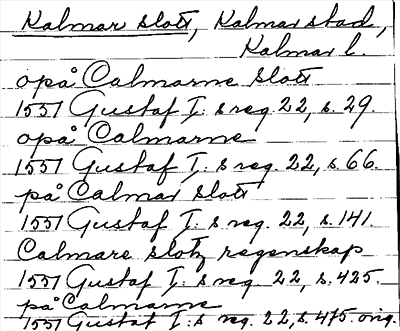 Kalmar slott, Kalmar stad,
Kalmar l.
opå Calmarne Slott
1551 Gustaf I:s reg. 22, s. 29.
opå Calmarne
1551 Gustaf I:s reg. 22, s. 66.
på Calmar Slott
1551 Gustaf I:s reg. 22, s. 141.
Calmare slotz regenskap
1551 Gustaf I:s reg. 22, s. 425.
på Calmarne
1551 Gustaf I:s reg. 22, s. 475. orig.